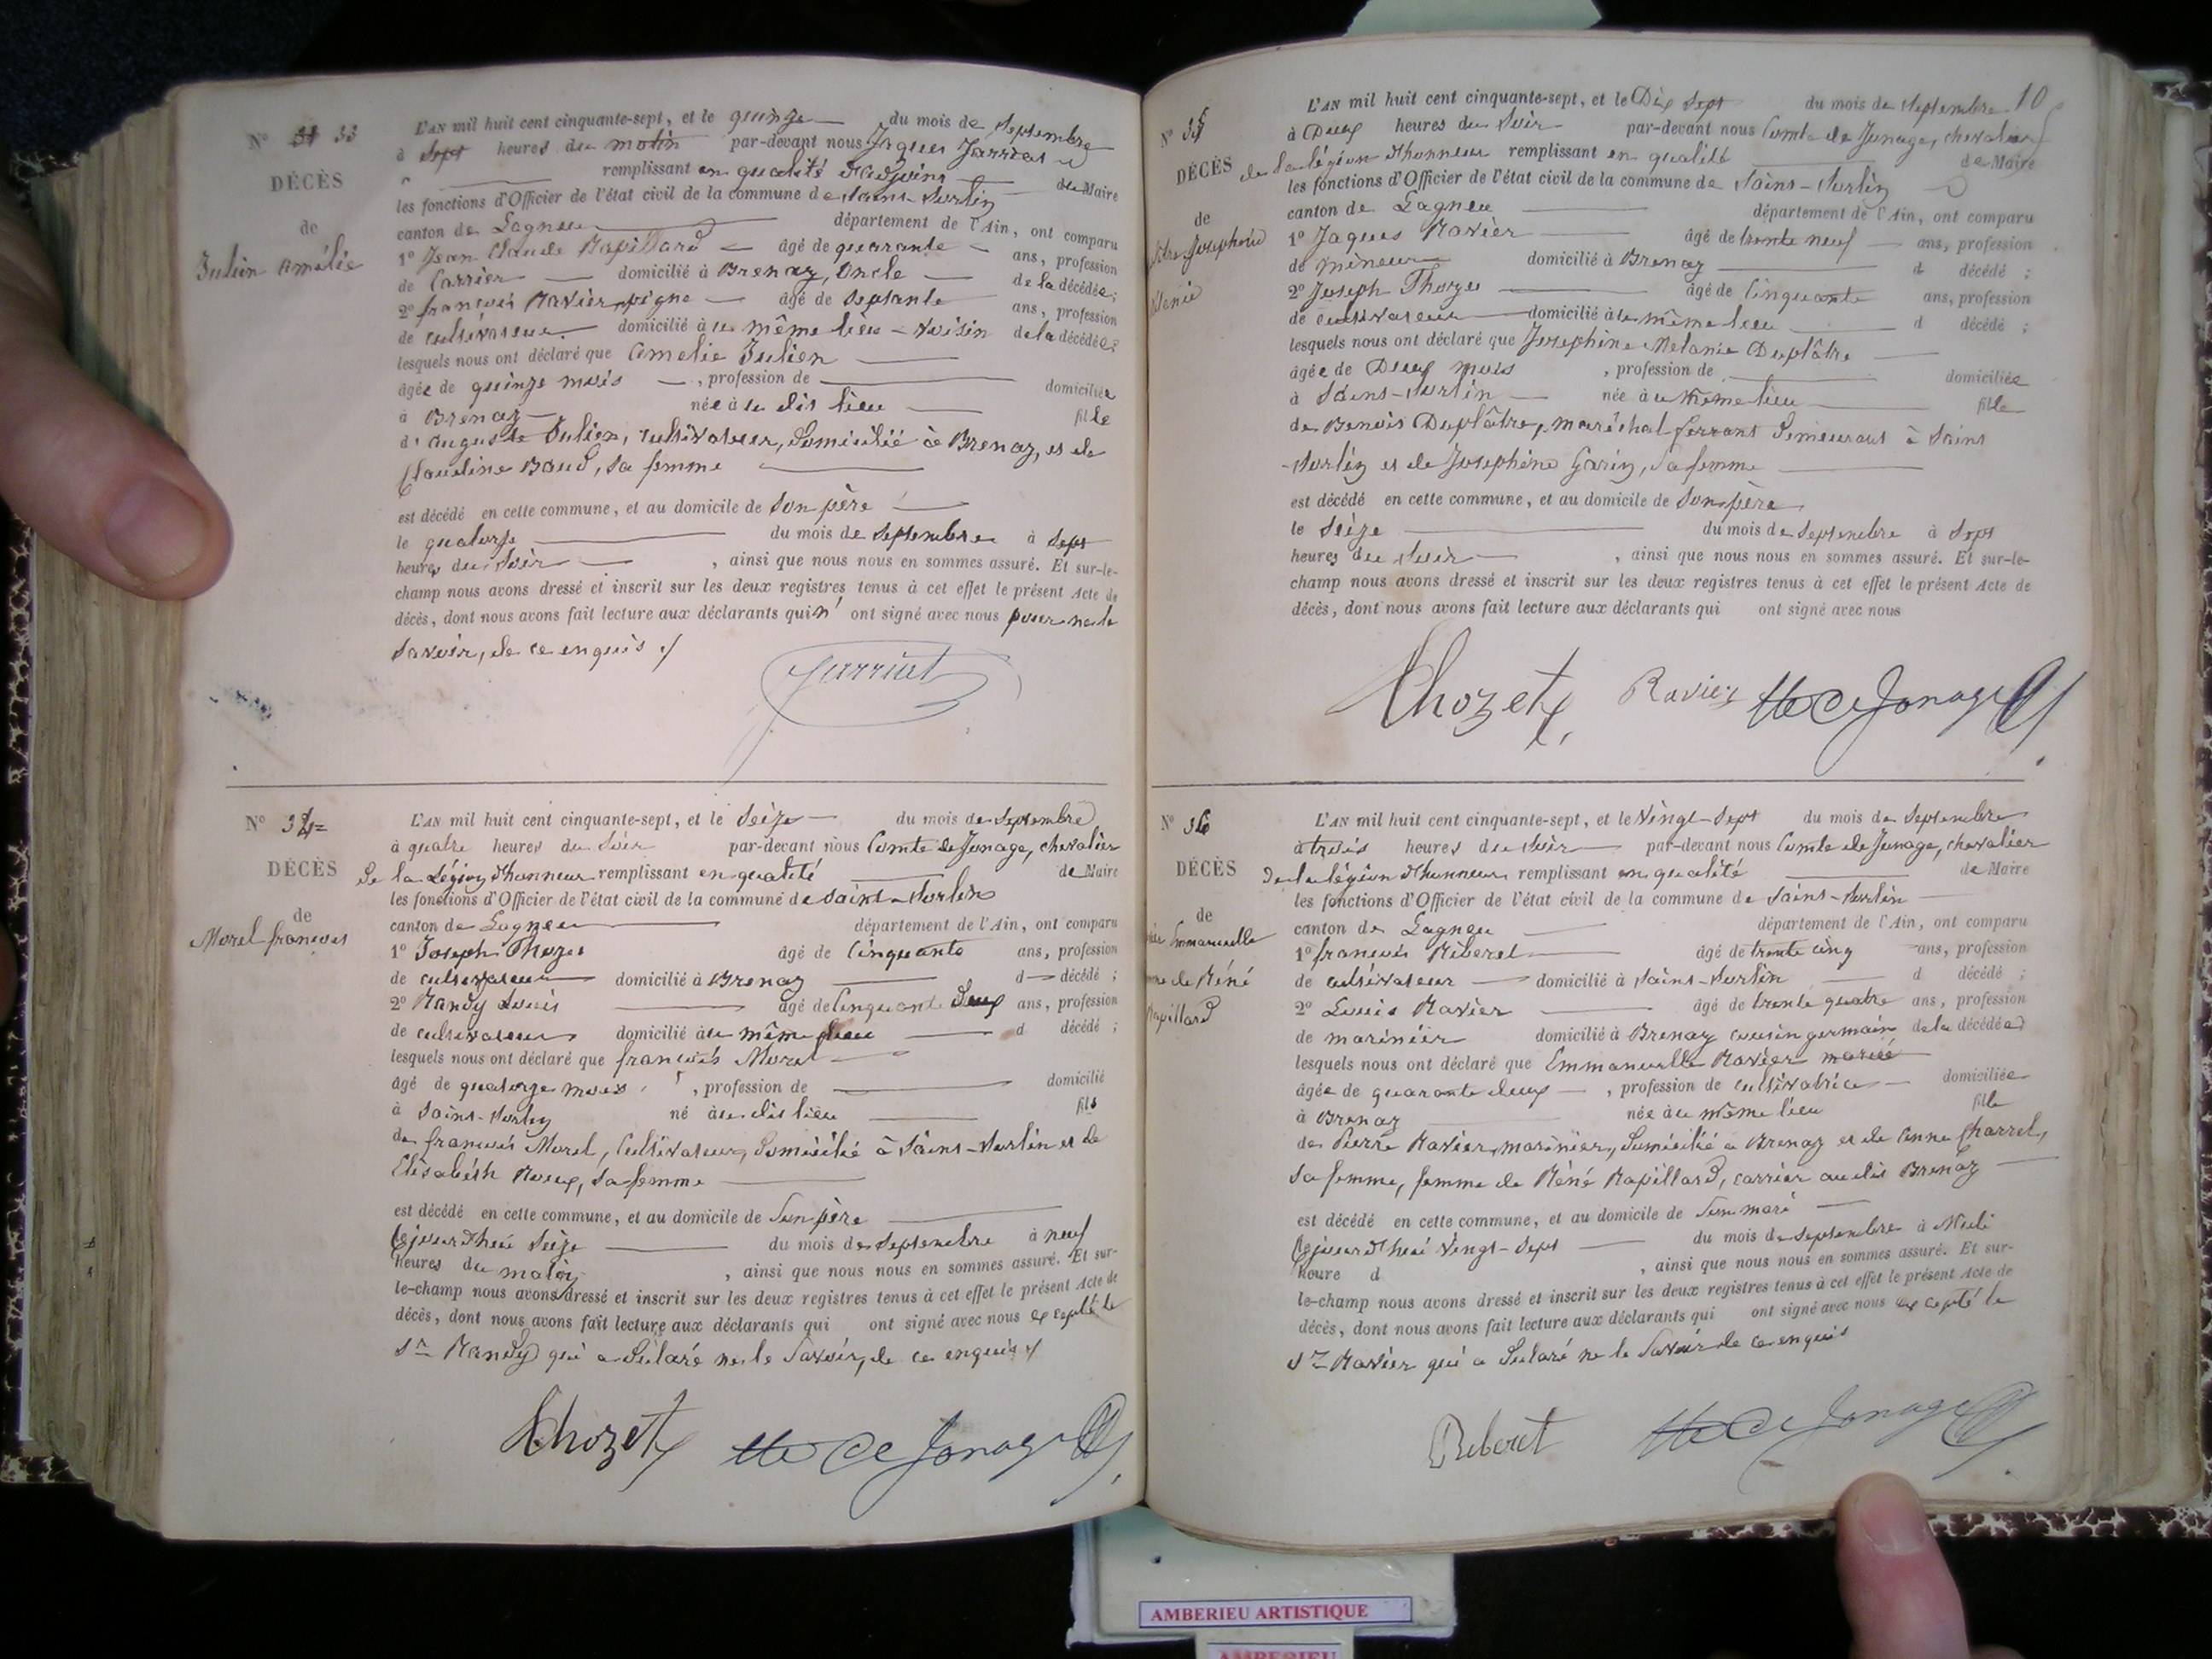 N° 33
DÉCÈS
de
Julien Amélie
L'AN mil huit cent cinquante-sept, et le quinze du mois de Septembre
à Sept heures du matin par-devant nous Jaques Jarriat
remplissant en qualité d'adjoint de Maire
les fonctions d'Officier de l'état civil de la commune de Saint-Sorlin
canton de Lagneu département de l'Ain, ont comparu
1° Jean Claude Rapillard âgé de quarante ans, profession
de Carrier domicilié à Brenaz, Oncle de la décédée;
2° françois Ravier pigne âgé de Septante ans, profession
de cultivateur domicilié à u même lieu - Voisin de la décédée;
lesquels nous ont déclaré que Amelie Julien
âgée de quinze mois, profession de domiciliée
à Brenaz née à u dit lieu fille
d'auguste Julien, cultivateur, domicilié à Brenaz, et de
Claudine Baud, sa femme
est décédé en cette commune, et au domicile de Son père
le quatorze du mois de Septembre à Sept
heures du Soir, ainsi que nous nous en sommes assuré. Et sur-le-
champ nous avons dressé et inscrit sur les deux registres tenus à cet effet le présent Acte de
décès, dont nous avons fait lecture aux déclarants qui n' ont signé avec nous pour ne le
Savoir, de ce enquis ./
Jarriat
N° 34
DÉCÈS
de
Morel françois
L'AN mil huit cent cinquante-sept, et le Seize du mois de Septembre
à quatre heures du Soir par-devant nous Comte de Jonage, chevalier
de la Légion d'honneur remplissant en qualité de Maire
les fonctions d'Officier de l'état civil de la commune de Saint-Sorlin
canton de Lagneu département de l'Ain, ont comparu
1° Joseph Thozet âgé de Cinquante ans, profession
de cultivateur domicilié à Brenaz d décédé;
2° Randy Louis âgé de Cinquante Deux ans, profession
de cultivateur domicilié à u même lieu d décédé;
lesquels nous ont déclaré que françois Morel
âgé de quatorze mois, profession de domicilié
à Saint-Sorlin né à u dit lieu fils
de françois Morel, Cultivateur, Domicilié à Saint-Sorlin et de
Elisabeth Roux, sa femme
est décédé en cette commune, et au domicile de Son père
Cejourd'hui Seize du mois de Septembre à neuf
heures du matin, ainsi que nous nous en sommes assuré. Et sur-
le-champ nous avons dressé et inscrit sur les deux registres tenus à cet effet le présent Acte de
décès, dont nous avons fait lecture aux déclarants qui ont signé avec nous excepté le
Sr Randy qui a Déclaré ne le Savoir, de ce enquis ./
Thozet Cte de Jonage
10
N° 35
DÉCÈS
de
Josephine
L'AN mil huit cent cinquante-sept, et le Dix Sept du mois de Septembre
à Deux heures du Soir par-devant nous Comte de Jonage, chevalier
de la légion d'honneur remplissant en qualité de Maire
les fonctions d'Officier de l'état civil de la commune de Saint-Sorlin
canton de Lagneu département de l'Ain, ont comparu
1° Jaques Ravier âgé de trente neuf ans, profession
de mineur domicilié à Brenaz d décédé;
2° Joseph Thozet âgé de Cinquante ans, profession
de cultivateur domicilié à u même lieu d décédé;
lesquels nous ont déclaré que Josephine Melanie Duplâtre
âgée de Deux mois, profession de domiciliée
à Saint-Sorlin née à u même lieu fille
de Benoit Duplâtre, maréchal ferrant demeurant à Saint
-Sorlin et de Josephine Garin, Sa femme
est décédé en cette commune, et au domicile de Son père
le Seize du mois de Septembre à Sept
heures du Soir, ainsi que nous nous en sommes assuré. Et sur-le-
champ nous avons dressé et inscrit sur les deux registres tenus à cet effet le présent Acte de
décès, dont nous avons fait lecture aux déclarants qui ont signé avec nous
Thozet Ravier Cte de Jonage
N° 36
DÉCÈS
de
Emmanuelle
de Réné
Rapillard
L'AN mil huit cent cinquante-sept, et le Vingt-Sept du mois de Septembre
à trois heures du Soir par-devant nous Comte de Jonage, chevalier
de la légion d'honneur remplissant en qualité de Maire
les fonctions d'Officier de l'état civil de la commune de Saint-Sorlin
canton de Lagneu département de l'Ain, ont comparu
1° françois Riberet âgé de trente cinq ans, profession
de cultivateur domicilié à Saint-Sorlin d décédé;
2° Louis Ravier âgé de trente quatre ans, profession
de marinier domicilié à Brenaz cousin germain de la décédée
lesquels nous ont déclaré que Emmanuelle Ravier mariée
âgée de quarante deux, profession de cultivatrice domiciliée
à Brenaz née à u même lieu fille
de Pierre Ravier, marinier, domicilié à Brenaz et de Anne Charrel,
Sa femme, femme de Réné Rapillard, carrier au dit Brenaz
est décédé en cette commune, et au domicile de Son mari
Cejourd'hui Vingt-Sept du mois de Septembre à Midi
heure d, ainsi que nous nous en sommes assuré. Et sur-
le-champ nous avons dressé et inscrit sur les deux registres tenus à cet effet le présent Acte de
décès, dont nous avons fait lecture aux déclarants qui ont signé avec nous excepté le
Sr Ravier qui a Déclaré ne le Savoir de ce enquis
Riberet Cte de Jonage
AMBERIEU ARTISTIQUE
AMBERIEU